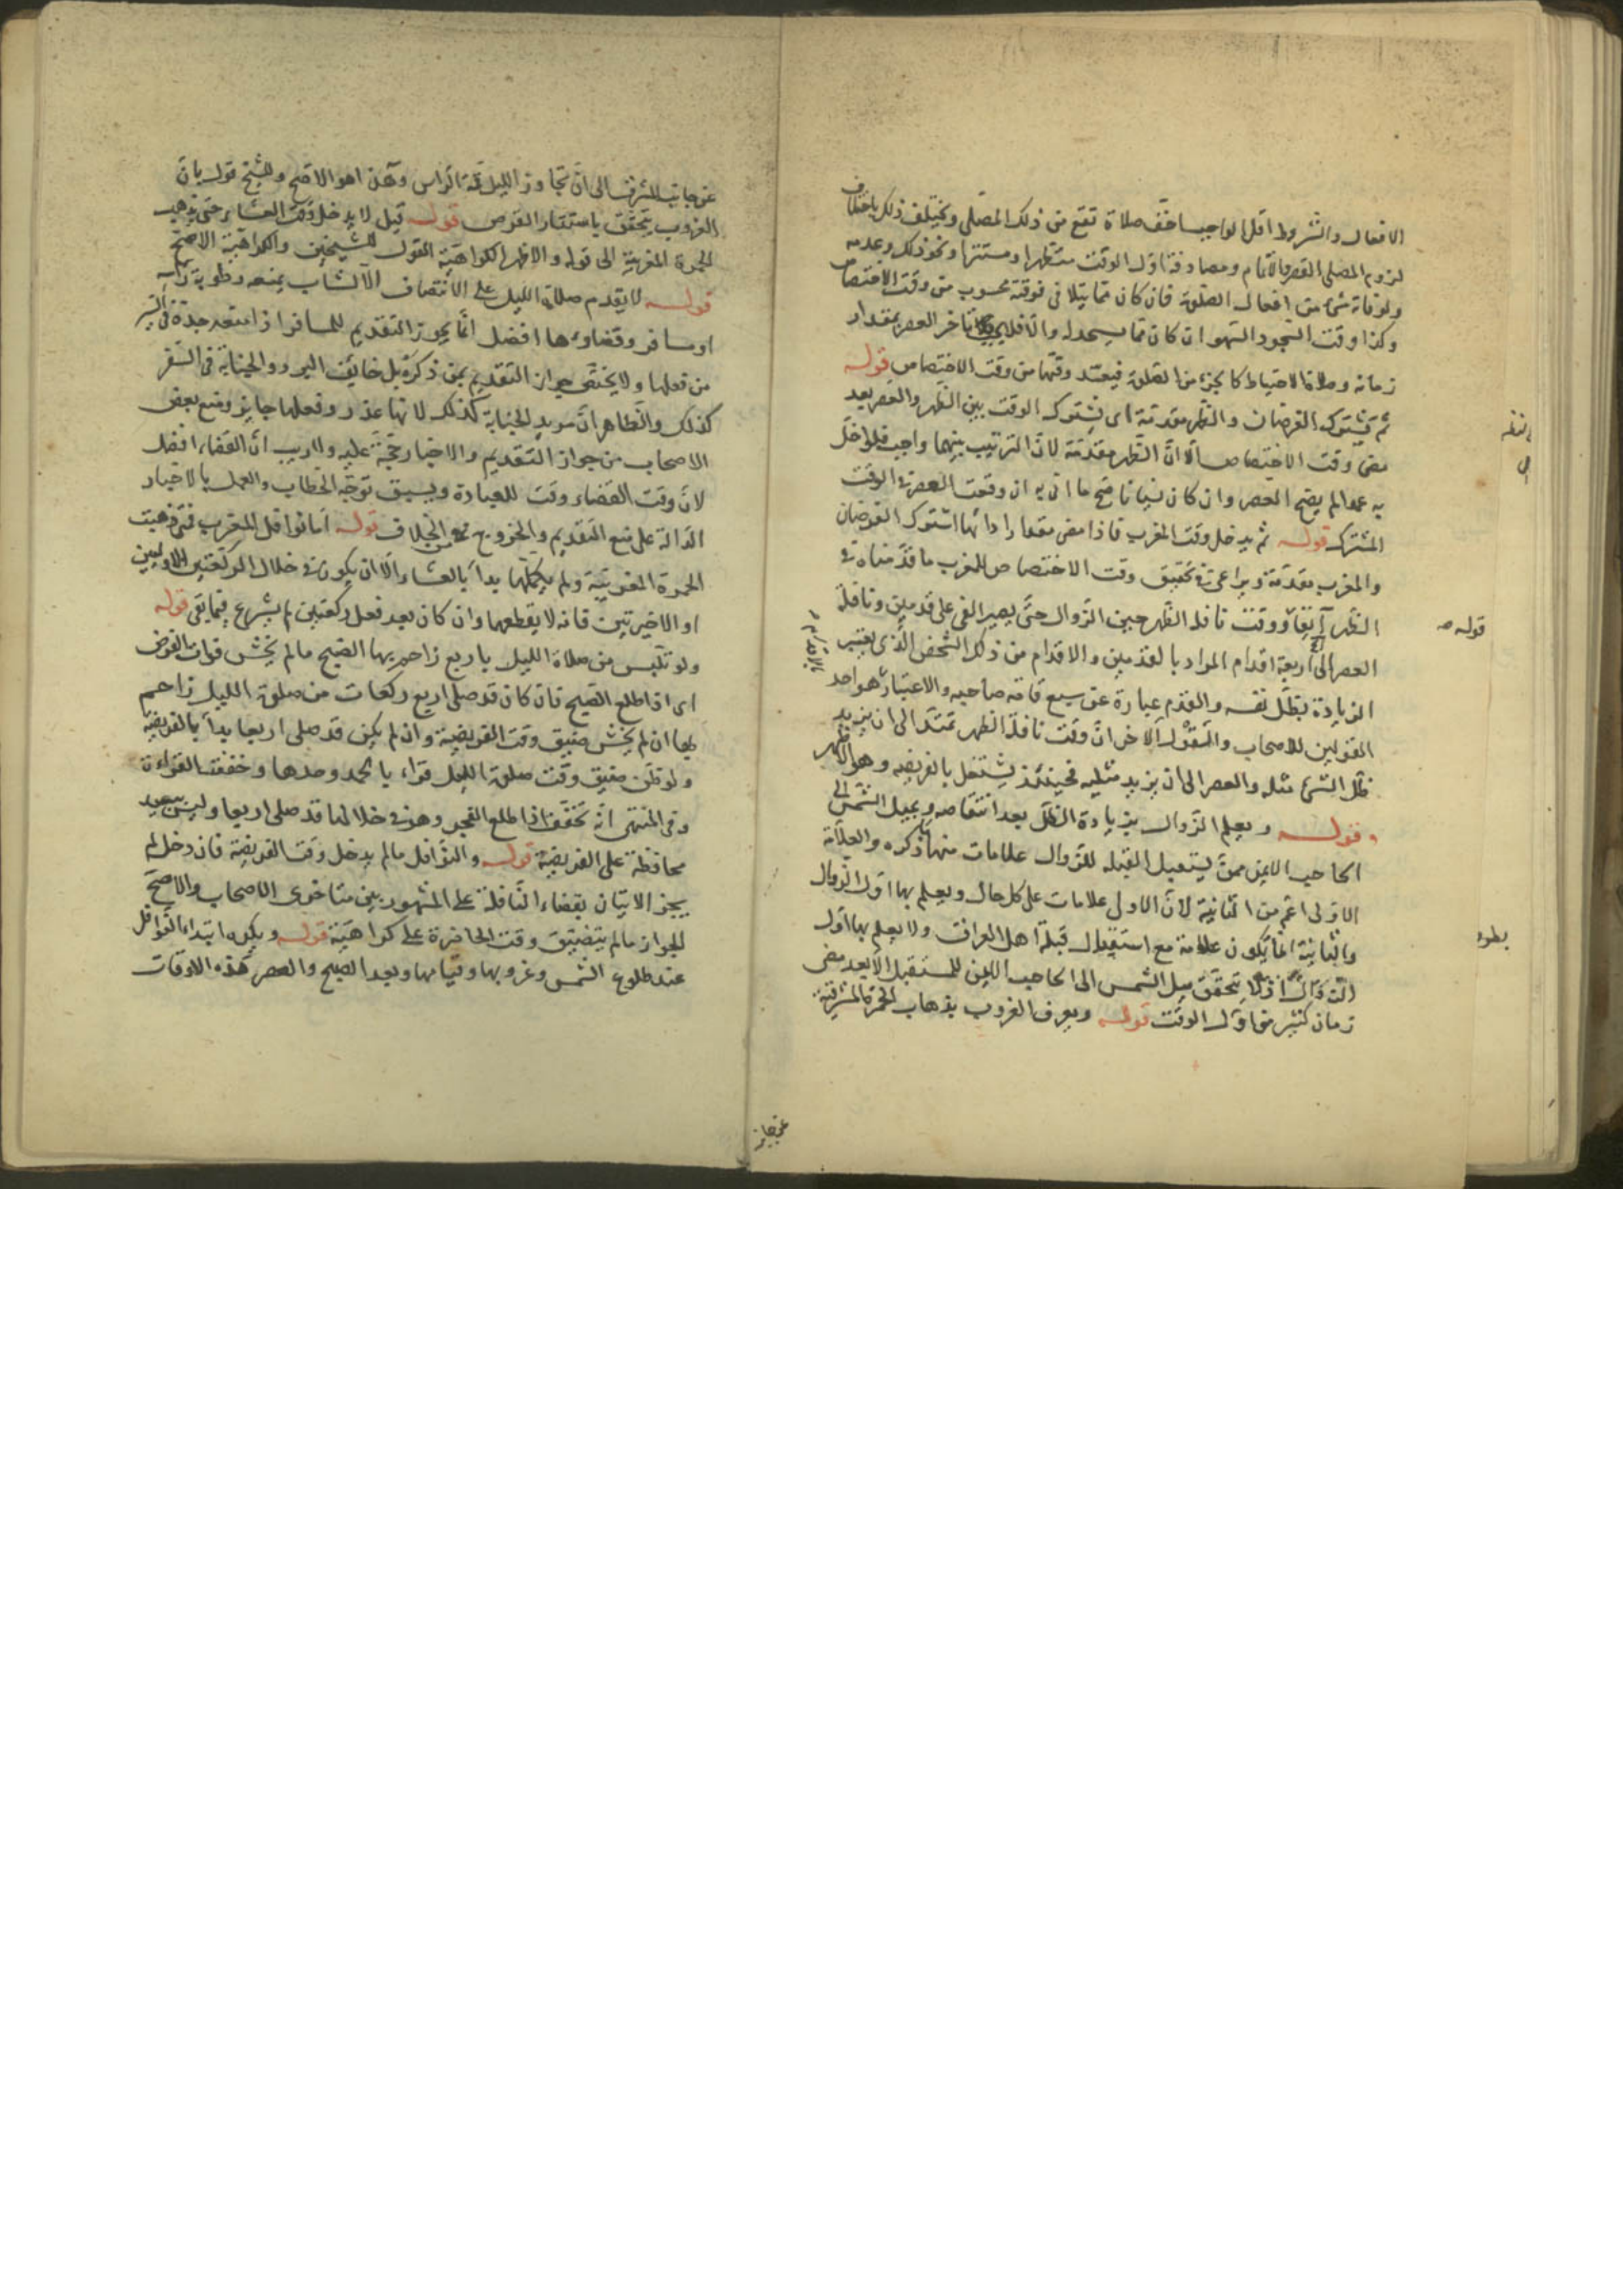 الافعال والشروط اقل الواجب اخف صلاة تقع من ذلك المصلي ويختلف ذلك باختلاف
لزوم المصلي القصر والاتمام ومصادفة اول الوقت متطهرا ومستترا ونحو ذلك وعدمه
ولو فاته شئ من افعال الصلوة فان كان مما يتلافى فوقته محسوب من وقت الاختصاص
وكذا وقت السجود السهو ان كان مما يسجد له والا فلا تاخر العصر بمقدار
زمانه وصلاة الاحتياط كالجزء من الصلوة فيعتد وقتها من وقت الاختصاص قوله
ثم يشترك الفرضان والظهر مقدمة اى يشترك الوقت بين الظهر والعصر بعد
مضى وقت الاختصاص الا ان الظهر مقدمة لان الترتيب بينهما واجب فلو اخل
به عمدا لم يصح العصر وان كان نسيانا صح ما اتى به ان وقعت العصر فى الوقت
المشترك قوله ثم يدخل وقت المغرب فاذا مضى مقدار ادائها اشترك الفرضان
والمغرب مقدمة ويراعى فى تحقيق وقت الاختصاص للمغرب ما قدمناه فى
الظهر آنفا ووقت نافلة الظهر حين الزوال حتى يصير الفى على قدمين ونافلة
العصر الى اربعة اقدام المراد بالقدمين والاقدام من ذلك الشخص الذى يعتبر
الزيادة بظل نفسه والقدم عبارة عن سبع قامة صاحبه والاعتبار هو احد
القولين للاصحاب والقول الاخر ان وقت نافلة الظهر تمتد الى ان يزيد
ظل الشئ مثله والعصر الى ان يزيد مثليه فحينئذ يشتغل بالفريضه وهو الاظهر
قوله ويعلم الزوال بزيادة الظل بعد انتقاصه وبميل الشمس الى
الحاجب الايمن ممن يستقبل القبله للزوال علامات منها ما ذكره والعلامة
الاولى اعم من الثانية لان الاولى علامات على كل حال ويعلم بها اول الزوال
والثانية انما يكون علامة مع استقبال قبلة اهل العراق ولا يعلم بها اول
الزوال اذ لا يتحقق ميل الشمس الى الحاجب الايمن للمستقبل الا بعد مضى
زمان كثير من اول الوقت قوله ويعرف الغروب بذهاب الحمرة المشرقية
قوله صه
بالاقدام
عن جانب
عن جانب المشرق الى ان تجاوز الليل قمة الراس وهذا هو الاصح وللشيخ قول بان
الغروب يتحقق باستتار القرص قوله قيل لا يدخل وقت العشاء حتى تذهب
الحمرة المغربية الى قوله والاظهر الكراهية القول للشيخين والكراهية الاصح
قوله لا يقدم صلاة الليل على الانتصاف الا لشاب يمنعه رطوبة راسه
او مسافر وقضاؤها افضل انما يجوز التقديم للمسافر اذا منعه جده فى السير
من فعلها ولا يختص جواز التقديم بمن ذكره بل خائف البرد والجنابة فى السفر
كذلك والظاهر ان مريد الجنابة كذلك لانها عذر وفعلها جايز ومنع بعض
الاصحاب من جواز التقديم والاخبار حجة عليه ولا ريب ان القضاء افضل
لان وقت القضاء وقت للعبادة ويسبق توجه الخطاب والعمل بالاخبار
الدالة على منع التقديم والخروج من الخلاف قوله اما نوافل المغرب فمتى ذهبت
الحمرة المغربية ولم يكملها بدأ بالعشاء الا ان يكون فى خلال الركعتين الاوليين
او الاخيرتين فانه لا يقطعهما وان كان بعد فعل ركعتين لم يشرع فيما بقى قوله
ولو تلبس من صلاة الليل باربع زاحم بها الصبح ما لم يخش فوات الفرض
اى اذا طلع الصبح فان كان قد صلى اربع ركعات من صلوة الليل زاحم
بها ان لم يخش ضيق وقت الفريضة وان لم يكن قد صلى اربعا بدأ بالفريضة
ولو ظن ضيق وقت صلوة الليل قراء بالحمد وحدها وخفف القراءة
وفى المنتهى انه يخفف اذا طلع الفجر وهو فى خلالها قد صلى اربعا وليس ببعيد
محافظة على الفريضة قوله والنوافل ما لم يدخل وقت الفريضة فان دخل لم
يجز الاتيان بقضاء النافلة على المشهور بين متاخرى الاصحاب والاصح
الجواز ما لم يتضيق وقت الحاضرة على كراهية قوله ويكره ابتداء النوافل
عند طلوع الشمس وغروبها وقيامها وبعد الصبح والعصر هذه الاوقات